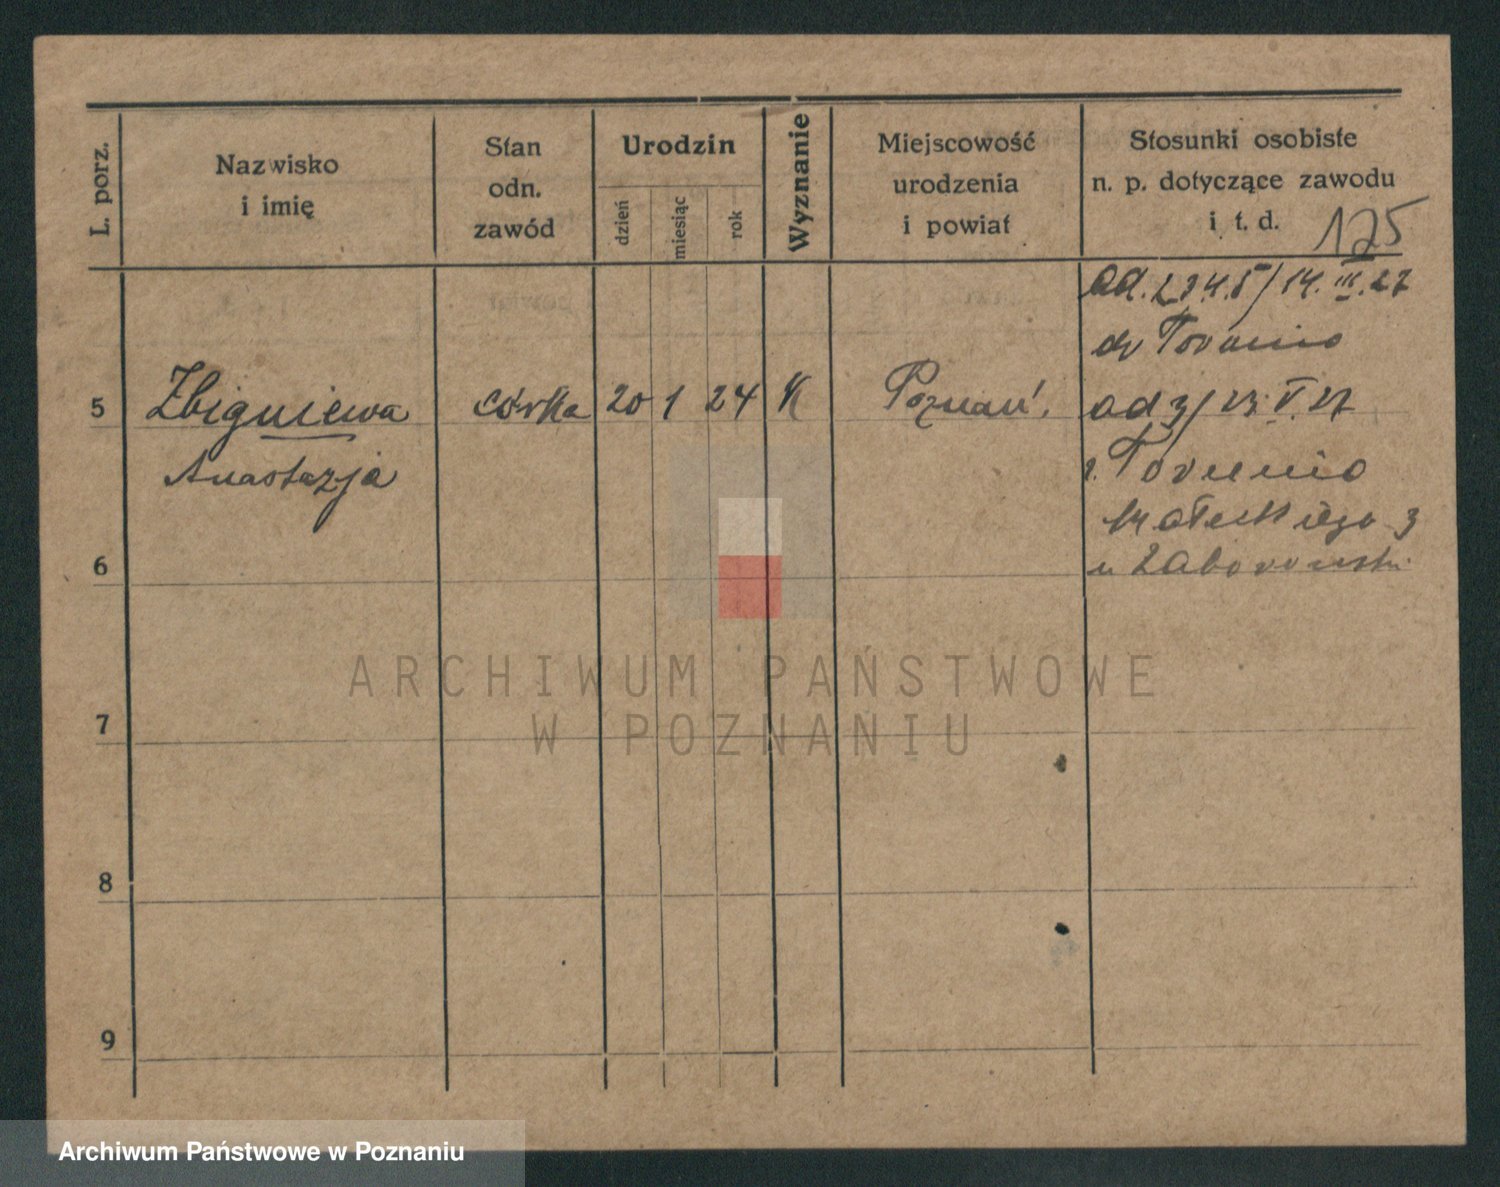 L. porz.
Nazwisko
i imię
Stan
odn.
zawód
Urodzin
dzień
miesiąc
rok
Wyznanie
Miejscowość
urodzenia
i powiat
Stosunki osobiste
n. p. dotyczące zawodu
i t. d.
125
od. 2 3 4. 5 / 14. III. 27
do Torunia
5 Zbigniewa córka 20 1 24 K Poznań. od 3/ 23. V. 27
Anastazja
z. Torunia
Małeckiego 3
u
6
7
8
9
ARCHIWUM PAŃSTWOWE
W POZNANIU
Archiwum Państwowe w Poznaniu